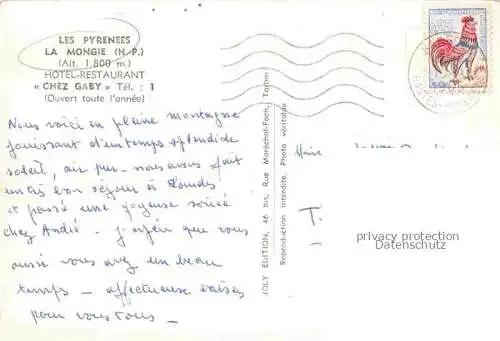 LES PYRENEES
LA MONGIE (H.-P.)
(Alt. 1.800 m.)
HOTEL-RESTAURANT
« CHEZ GABY » Tél. : 1
(Ouvert toute l'année)
Nous voici en pleine montagne
jouissant d'un temps splendide
soleil, air pur - nous avons fait
un très bon séjour à Lourdes
et passé une joyeuse soirée
chez André - j'espère que vous
aussi vous avez un beau
temps - affectueuse baisers
pour vous tous -
JOLY EDITION, 46 bis, Rue Maréchal-Foch, Tarbes
Reproduction interdite. Photo véritable
0,25
T.
privacy protection
Datenschutz